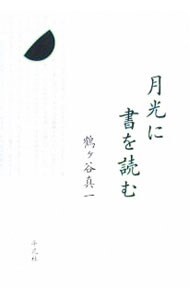 月光に
書を読む
鶴ヶ谷真一
平凡社